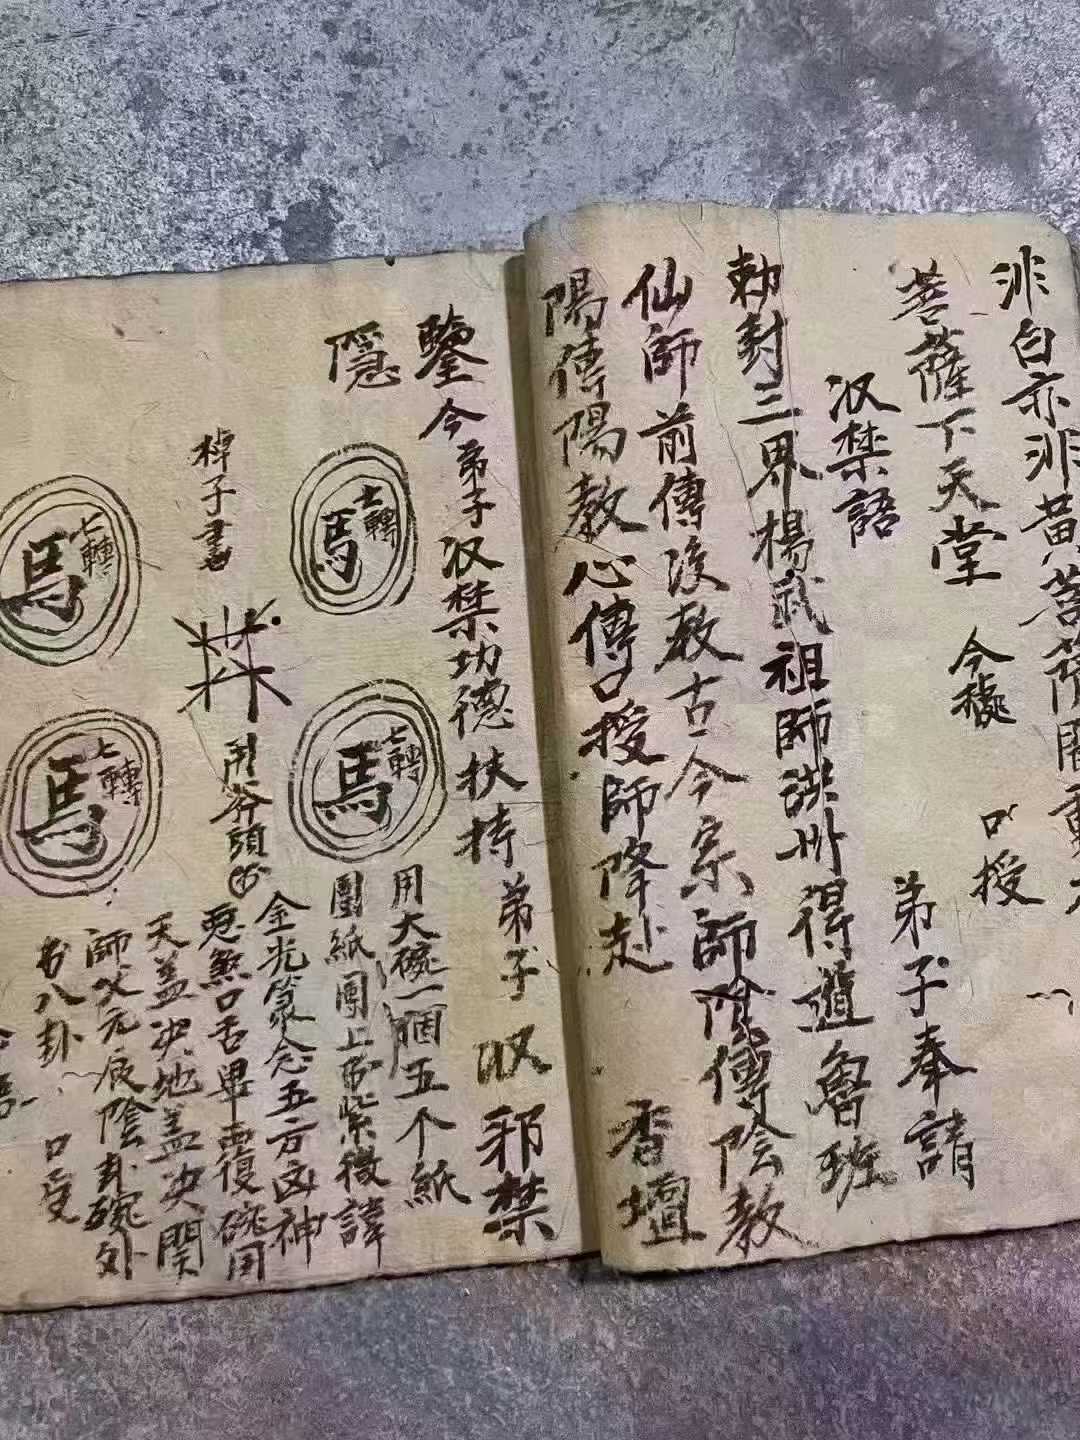 非白亦非黄菩薩開
菩薩下天堂 今 口授
汉禁語 弟子奉請
勅封三界楊武祖師洪州得道魯班
仙師前傳後教古今宗師陰傳陰教
陽傳陽教心傳口授師降赴 香壇
鑒今弟子汉禁功德扶持弟子収邪禁
隱
七轉馬
七轉馬
用大碗一個五个紙
團紙團上書紫微諱
金光篆念五方凶神
惡煞口舌畢覆碗用
天盖决地盖决閑
師父元辰陰卦碗外
書八卦 口受
棹子書
用斧頭
七轉馬
七轉馬